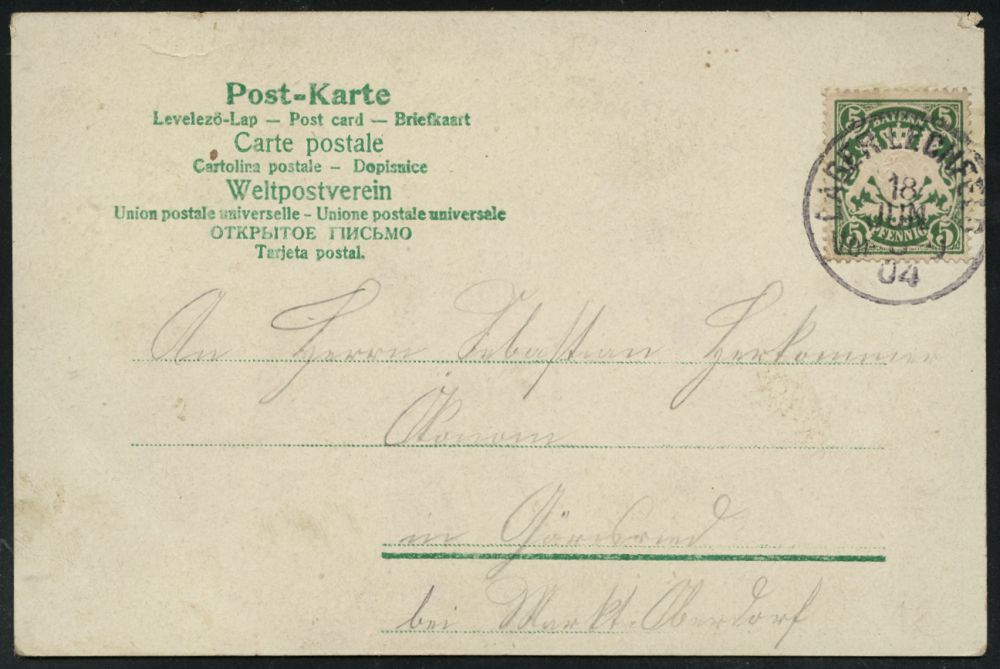 Post-Karte
Levelező-Lap — Post card — Briefkaart
Carte postale
Cartolina postale — Dopisnice
Weltpostverein
Union postale universelle - Unione postale universale
ОТКРЫТОЕ ПИСЬМО
Tarjeta postal.
5 5
LAGER LECHFELD
18
JUN
PFENNIG
5 5
04
An Herrn Sebastian Herkommer
Ökonom
in Görisried
bei Markt-Oberdorf